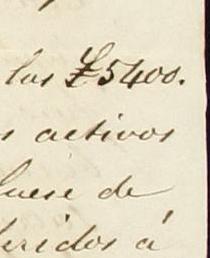 los £5400.
s activos
fuese de
feridos á